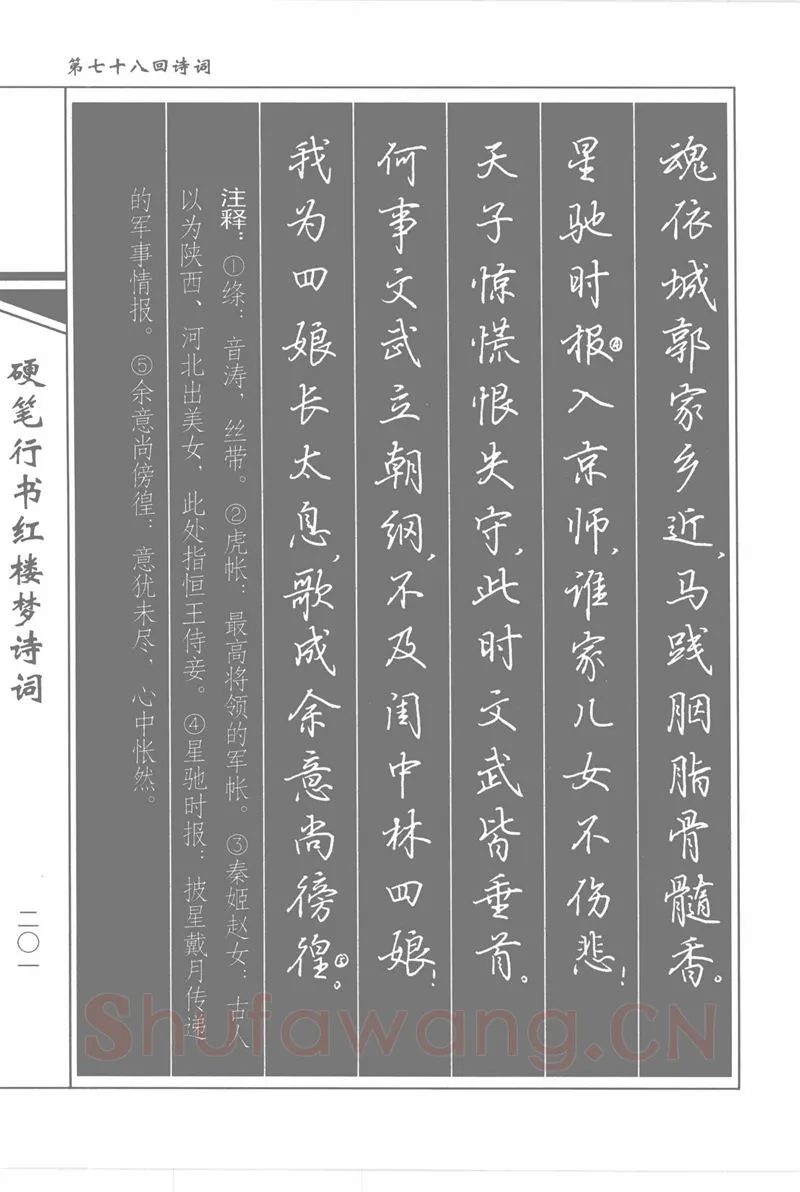 第七十八回诗词
魂依城郭家乡近,马践胭脂骨髓香。
星驰时报④入京师,谁家儿女不伤悲!
天子惊慌恨失守,此时文武皆垂首。
何事文武立朝纲,不及闺中林四娘!
我为四娘长太息,歌成余意尚徬徨⑤。
注释:①绦:音涛,丝带。②虎帐:最高将领的军帐。③秦姬赵女:古人
以为陕西、河北出美女,此处指恒王侍妾。④星驰时报:披星戴月传递
的军事情报。⑤余意尚傍徨:意犹未尽,心中怅然。
硬笔行书红楼梦诗词
二〇一
Shufawang.CN